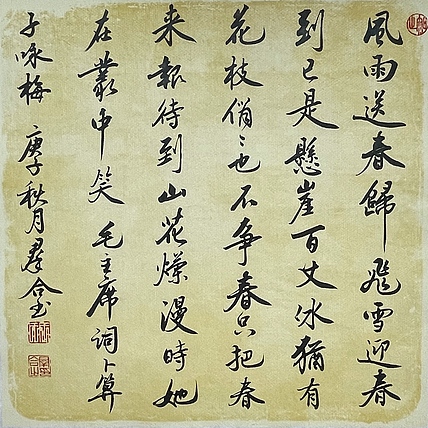 風雨送春歸飛雪迎春
到已是懸崖百丈冰猶有
花枝俏〻也不争春只把春
来報待到山花爛漫時她
在叢中笑 毛主席詞卜算
子咏梅 庚子秋月